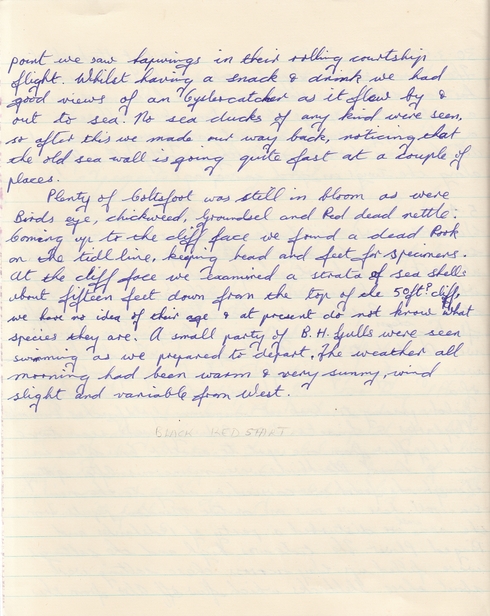 point we saw lapwings in their rolling courtship
flight. Whilst having a snack & drink we had
good views of an Oystercatcher as it flew by &
out to sea. No sea ducks of any kind were seen,
so after this we made our way back, noticing that
the old sea wall is going quite fast at a couple of
places.
Plenty of Coltsfoot was still in bloom as were
Birds eye, chickweed, Groundsel and Red dead nettle.
Coming up to the cliff face we found a dead Rook
on the tidl line, keeping head and feet for specimens.
At the cliff face we examined a strata of sea shells
about fifteen feet down from the top of the 50ft? cliff,
we have no idea of their age & at present do not know what
species they are. A small party of B.H. Gulls were seen
swimming as we prepared to depart. The weather all
morning had been warm & very sunny, wind
slight and variable from West.
BLACK REDSTART